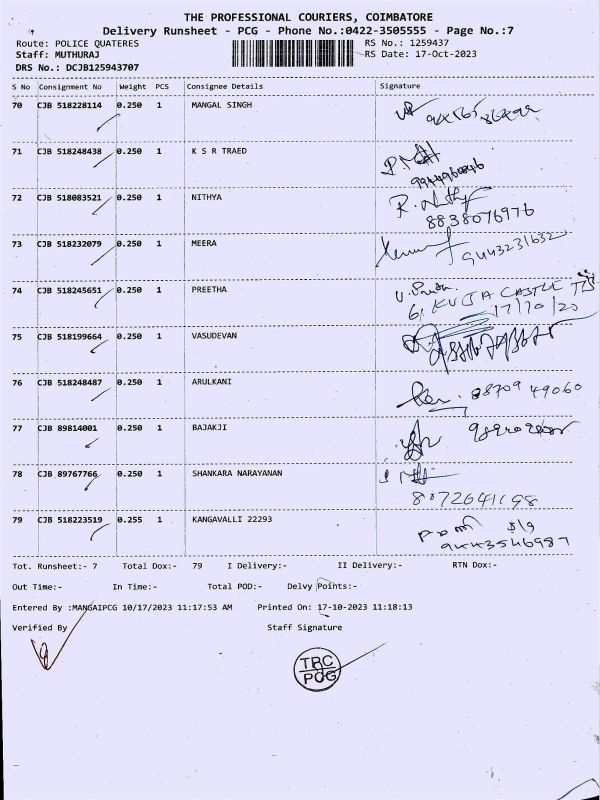 THE PROFESSIONAL COURIERS, COIMBATORE
Delivery Runsheet - PCG - Phone No.:0422-3505555 - Page No.:7
Route: POLICE QUATERES RS No.: 1259437
Staff: MUTHURAJ RS Date: 17-Oct-2023
DRS No.: DCJB125943707
S No Consignment No Weight PCS Consignee Details Signature
70 CJB 518228114 0.250 1 MANGAL SINGH
71 CJB 518248438 0.250 1 K S R TRAED
9944960846
72 CJB 518083521 0.250 1 NITHYA R. Nithy
8838076976
73 CJB 518232079 0.250 1 MEERA 9443231632
74 CJB 518245651 0.250 1 PREETHA
6, KUJA CASTLE
17/10/20
75 CJB 518199664 0.250 1 VASUDEVAN
76 CJB 518248487 0.250 1 ARULKANI 88709 49060
77 CJB 89814001 0.250 1 BAJAKJI
78 CJB 89767766 0.250 1 SHANKARA NARAYANAN
8072641198
79 CJB 518223519 0.255 1 KANGAVALLI 22293
9443546987
Tot. Runsheet:- 7 Total Dox:- 79 I Delivery:- II Delivery:- RTN Dox:-
Out Time:- In Time:- Total POD:- Delvy Points:-
Entered By :MANGAIPCG 10/17/2023 11:17:53 AM Printed On: 17-10-2023 11:18:13
Verified By Staff Signature
TRC
PCG